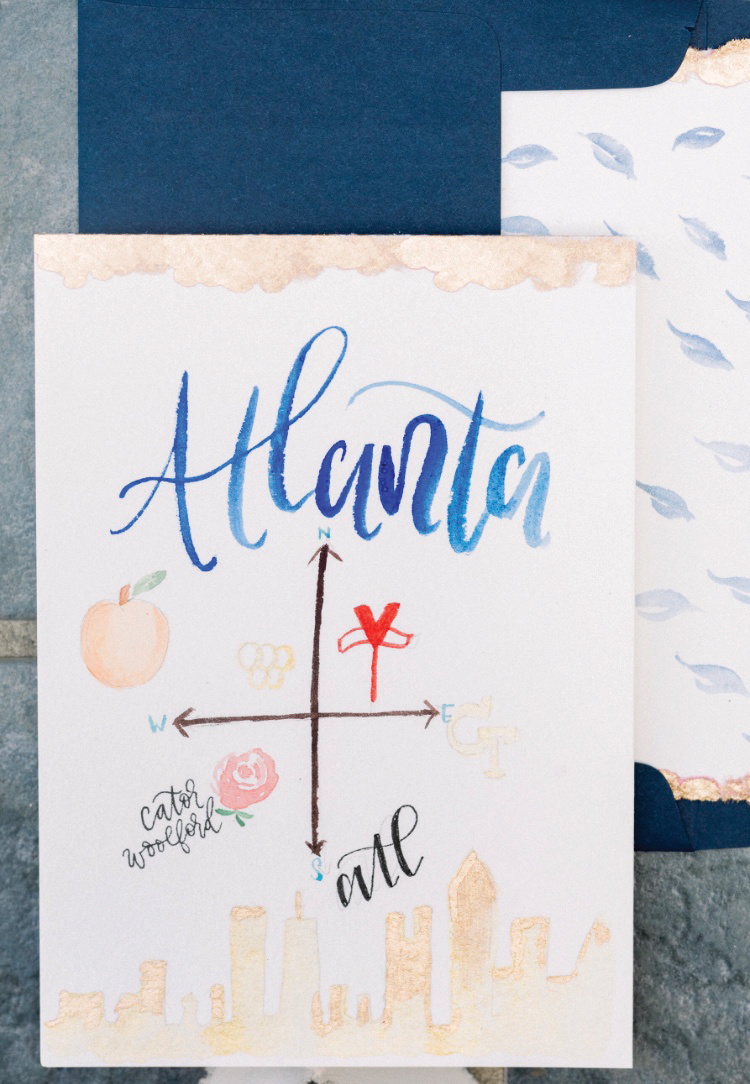 Atlanta
N
W
E
GT
cator
woolford
S
atl